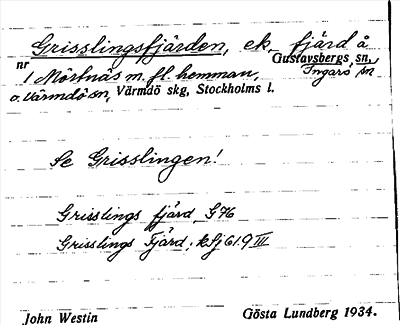 Grisslingsfjärden, ek. fjärd å
nr Gustavsbergs sn,
1 Mörtnäs m. fl. hemman, Ingarö sn
o. Värmdö sn, Värmdö skg, Stockholms l.
Se Grisslingen!
Grisslings fjärd G76
Grisslings Fjärd, kfj 619 III
John Westin Gösta Lundberg 1934.